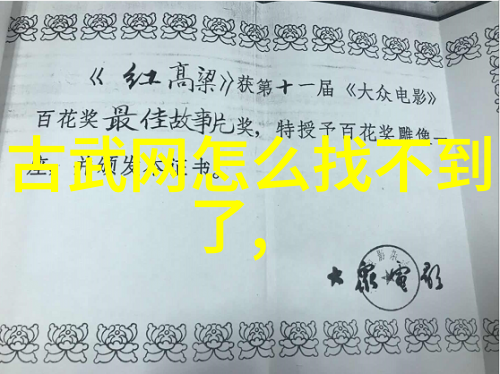 《红高梁》获第十一届《大众电影》
百花奖最佳故事片奖，特授予百花奖雕像一
座，并颁发本证书。
古武网怎么找不到
了，
大众电影